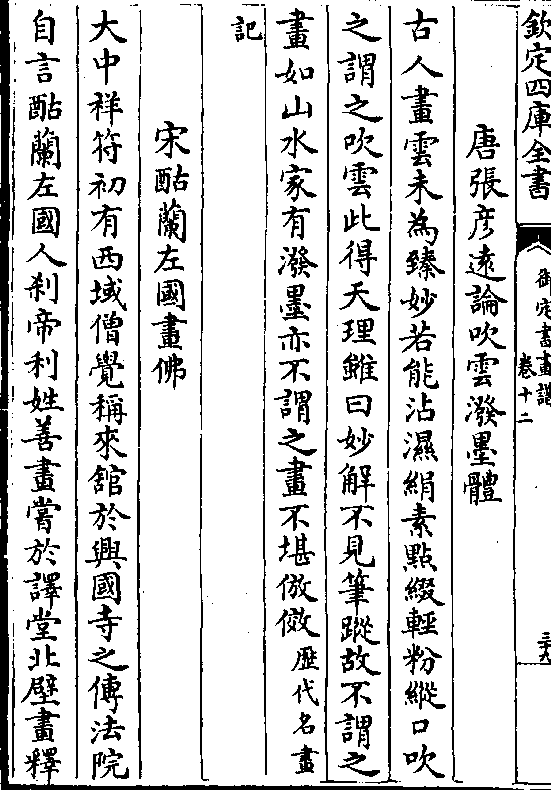 欽定四庫全書
御定書畫譜
卷十二
唐張彦遠論吹雲潑墨體
古人畫雲未為臻妙若能沾濕絹素點綴輕粉縱口吹
之謂之吹雲此得天理雖曰妙解不見筆蹤故不謂之
畫如山水家有潑墨亦不謂之畫不堪倣傚歴代名畫
記
宋酤蘭左國畫佛
大中祥符初有西域僧覺稱來舘於興國寺之傳法院
自言酤蘭左國人刹帝利姓善畫嘗於譯堂北壁畫釋